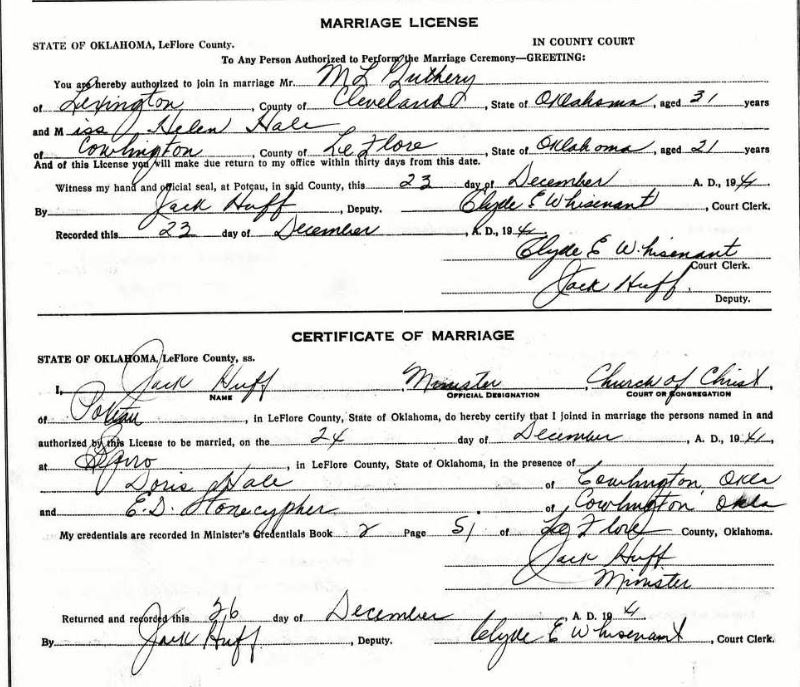 MARRIAGE LICENSE
STATE OF OKLAHOMA, LeFlore County. IN COUNTY COURT
To Any Person Authorized to Perform the Marriage Ceremony—GREETING:
You are hereby authorized to join in marriage Mr. M L Guthery
of Lexington, County of Cleveland, State of Oklahoma, aged 31 years
and Miss Helen Hale
of Cowlington, County of Le Flore, State of Oklahoma, aged 21 years
And of this License you will make due return to my office within thirty days from this date.
Witness my hand and official seal, at Poteau, in said County, this 23 day of December A. D., 194
By Jack Huff, Deputy. Clyde E Whisenant, Court Clerk.
Recorded this 23 day of December, A. D., 194
Clyde E Whisenant
Court Clerk.
Jack Huff.
Deputy.
CERTIFICATE OF MARRIAGE
STATE OF OKLAHOMA, LeFlore County, ss.
I, Jack Huff Minister Church of Christ,
NAME OFFICIAL DESIGNATION COURT OR CONGREGATION
of Poteau, in LeFlore County, State of Oklahoma, do hereby certify that I joined in marriage the persons named in and
authorized by this License to be married, on the 24 day of December, A. D., 1941,
at, in LeFlore County, State of Oklahoma, in the presence of
Doris Hale of Cowlington, Okla
and E.D. Stonecypher of Cowlington Okla
My credentials are recorded in Minister's Credentials Book 2 Page 51 of Le Flore County, Oklahoma.
Jack Huff
Minister
Returned and recorded this 26 day of December, A. D. 194
By Jack Huff, Deputy. Clyde E Whisenant, Court Clerk.